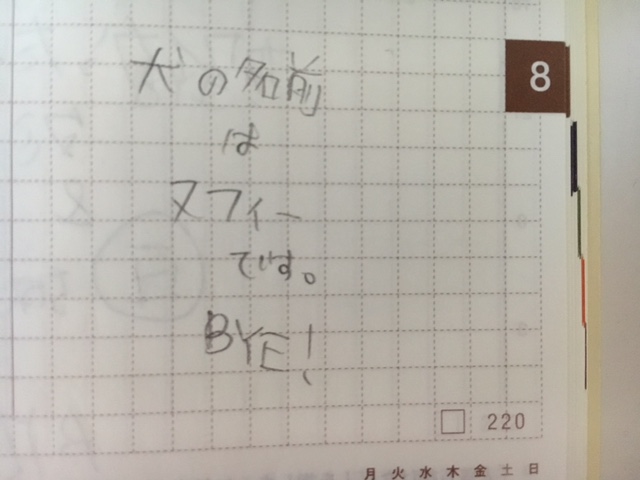 犬の名前
は
ヌフィー
です。
BYE!
8
220
月 火 水 木 金 土 日